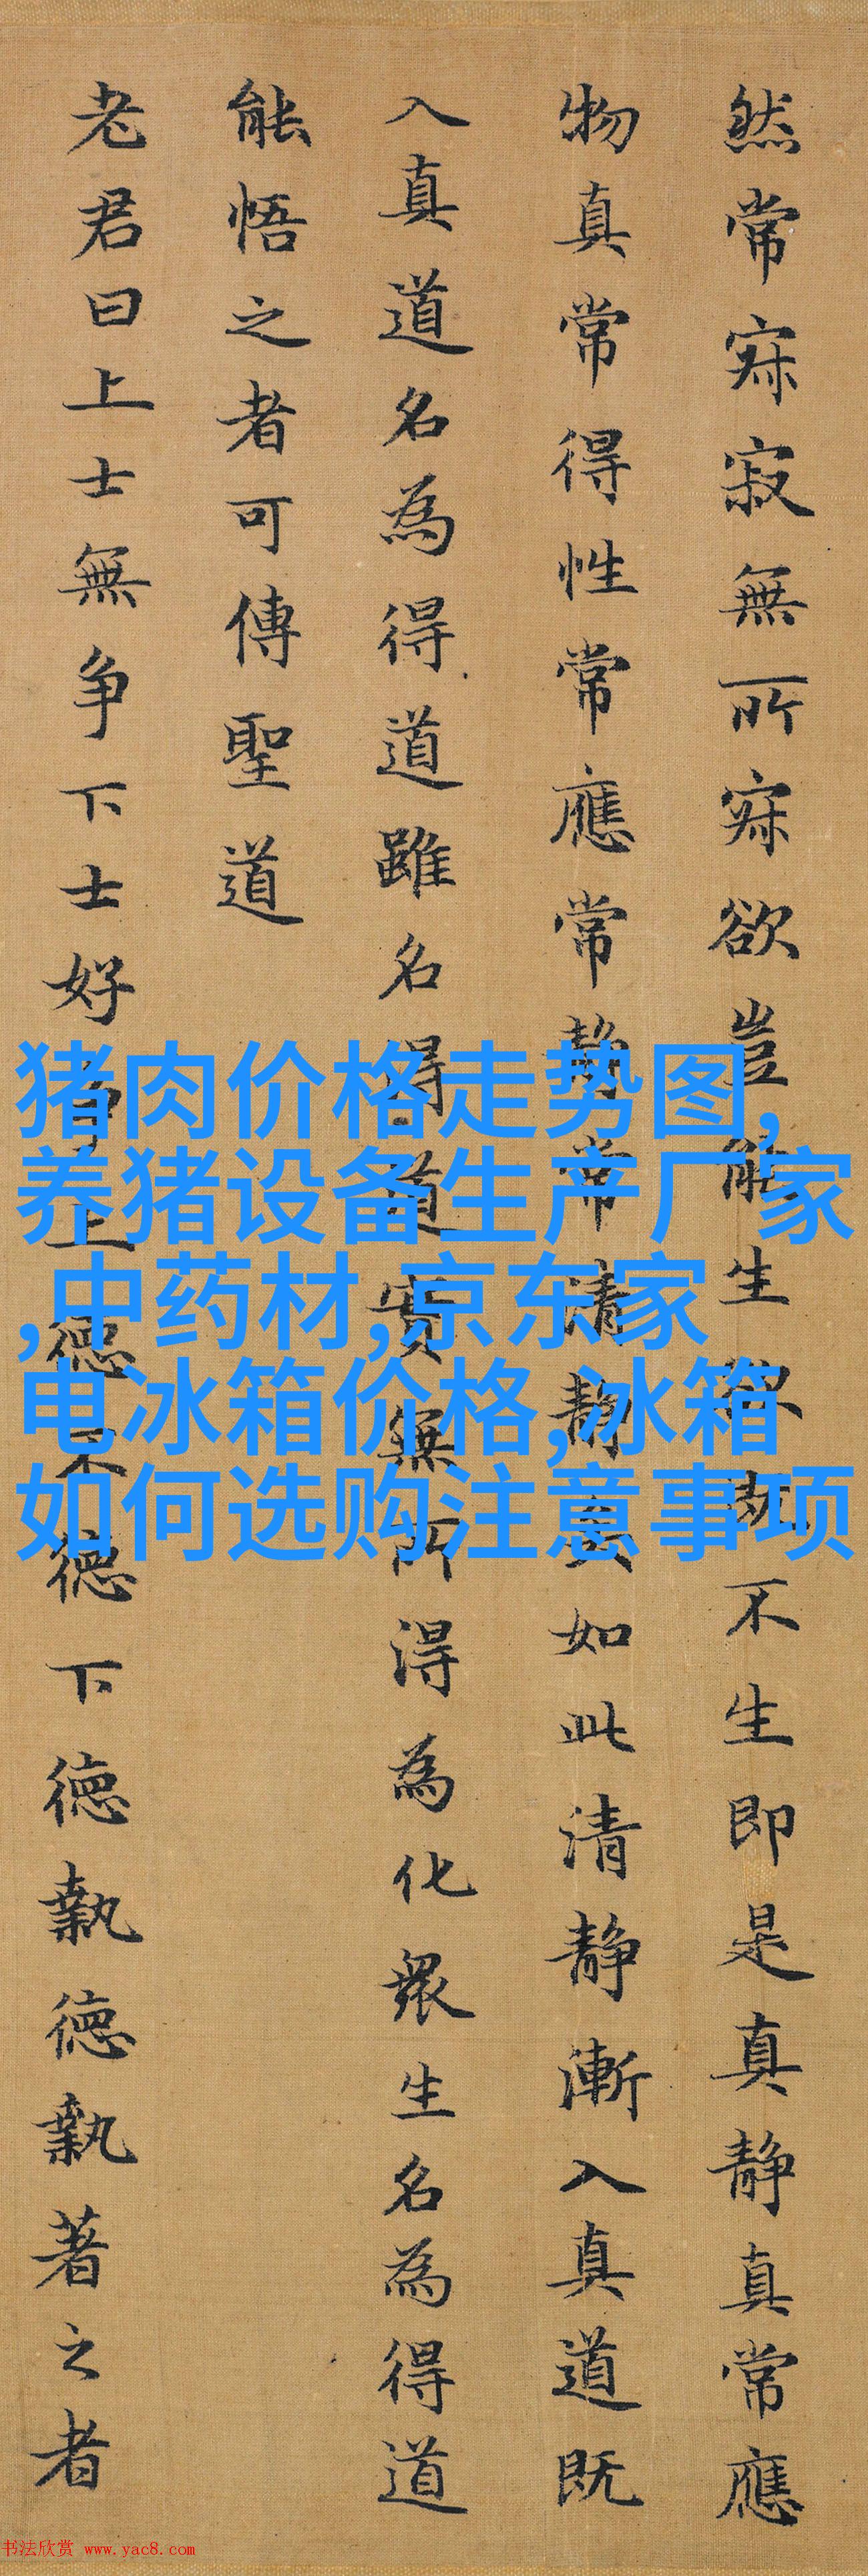 然常寂寂無所寂欲豈能生欲既不生即是真静真常應
物真常得性常應常静常清静矣如此清静漸入真道既
入真道名為得道雖名得道實無所得為化眾生名為得道
能悟之者可傳聖道
老君曰上士無争下士好争上德不德下德執德執著之者
猪肉价格走势图,
养猪设备生产厂家
,中药材,京东家
电冰箱价格,冰箱
如何选购注意事项
书法欣赏 www.yac8.com